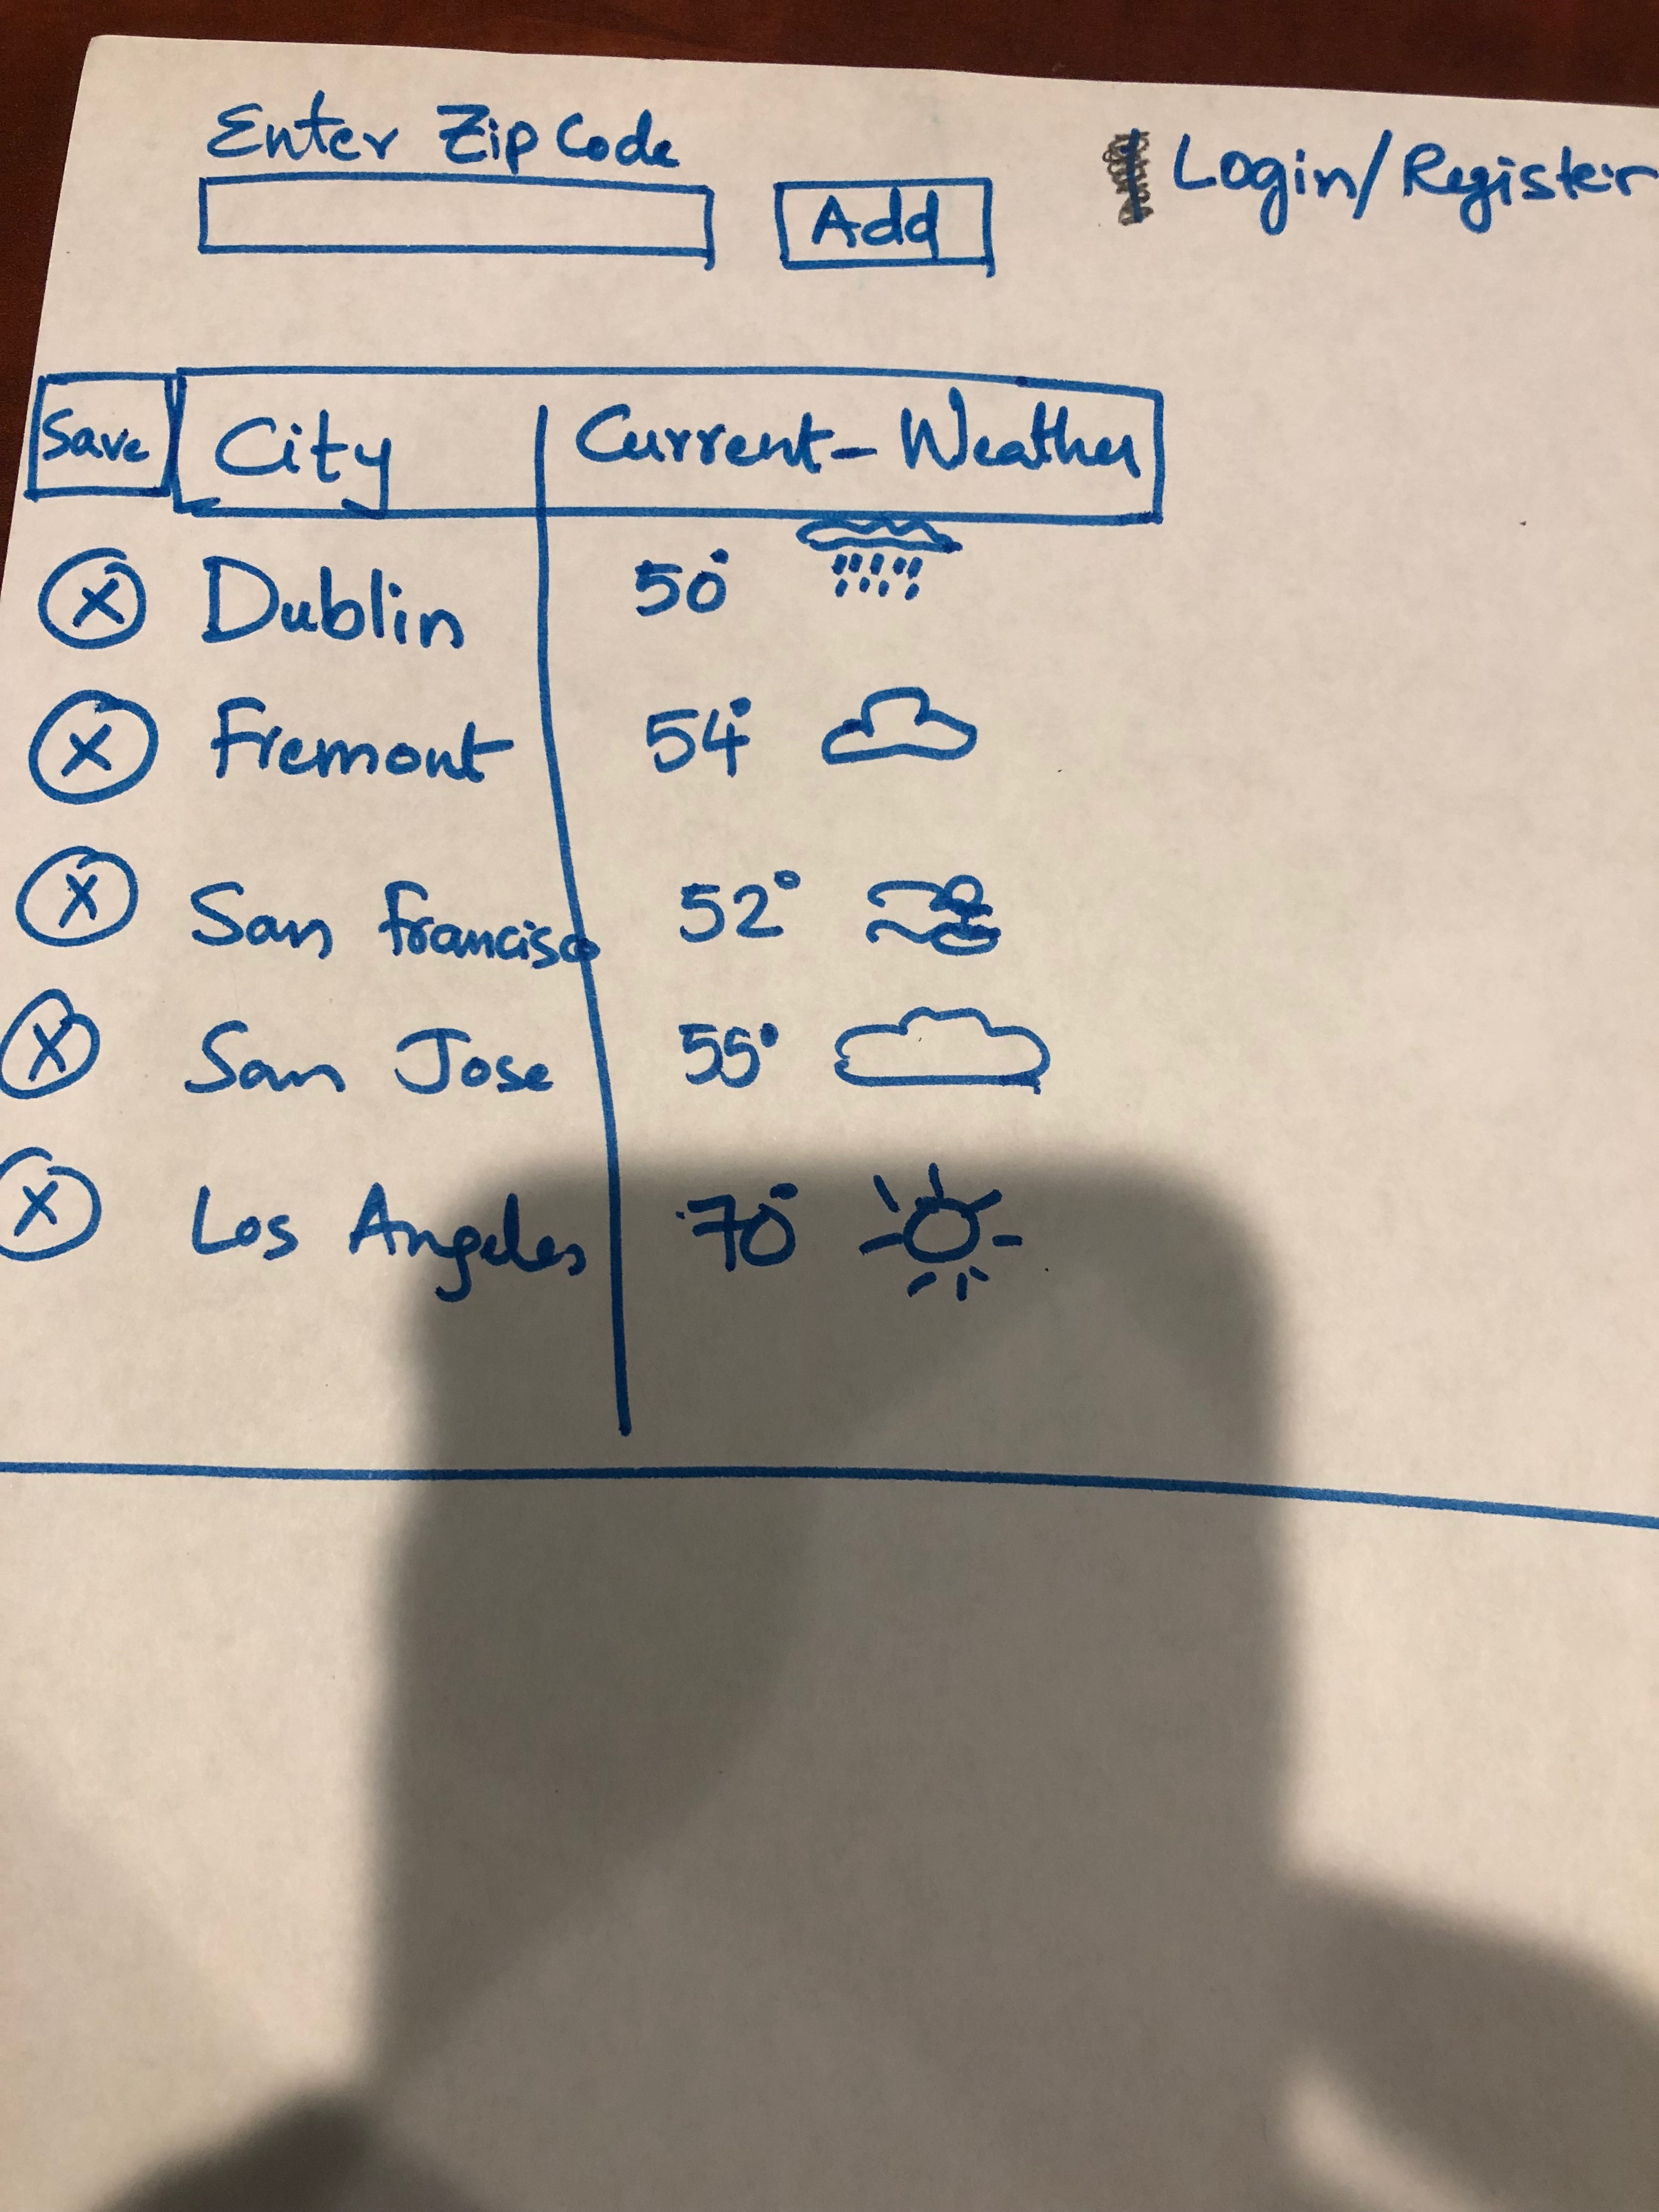 Enter Zip Code
Add
Login/Register
Save City Current-Weather
X Dublin 50°
X Fremont 54°
X San Francisco 52°
X San Jose 55°
X Los Angeles 70°